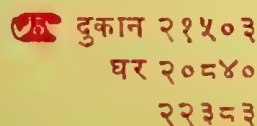 दुकान २१५०३
घर २०८४०
२२३८३